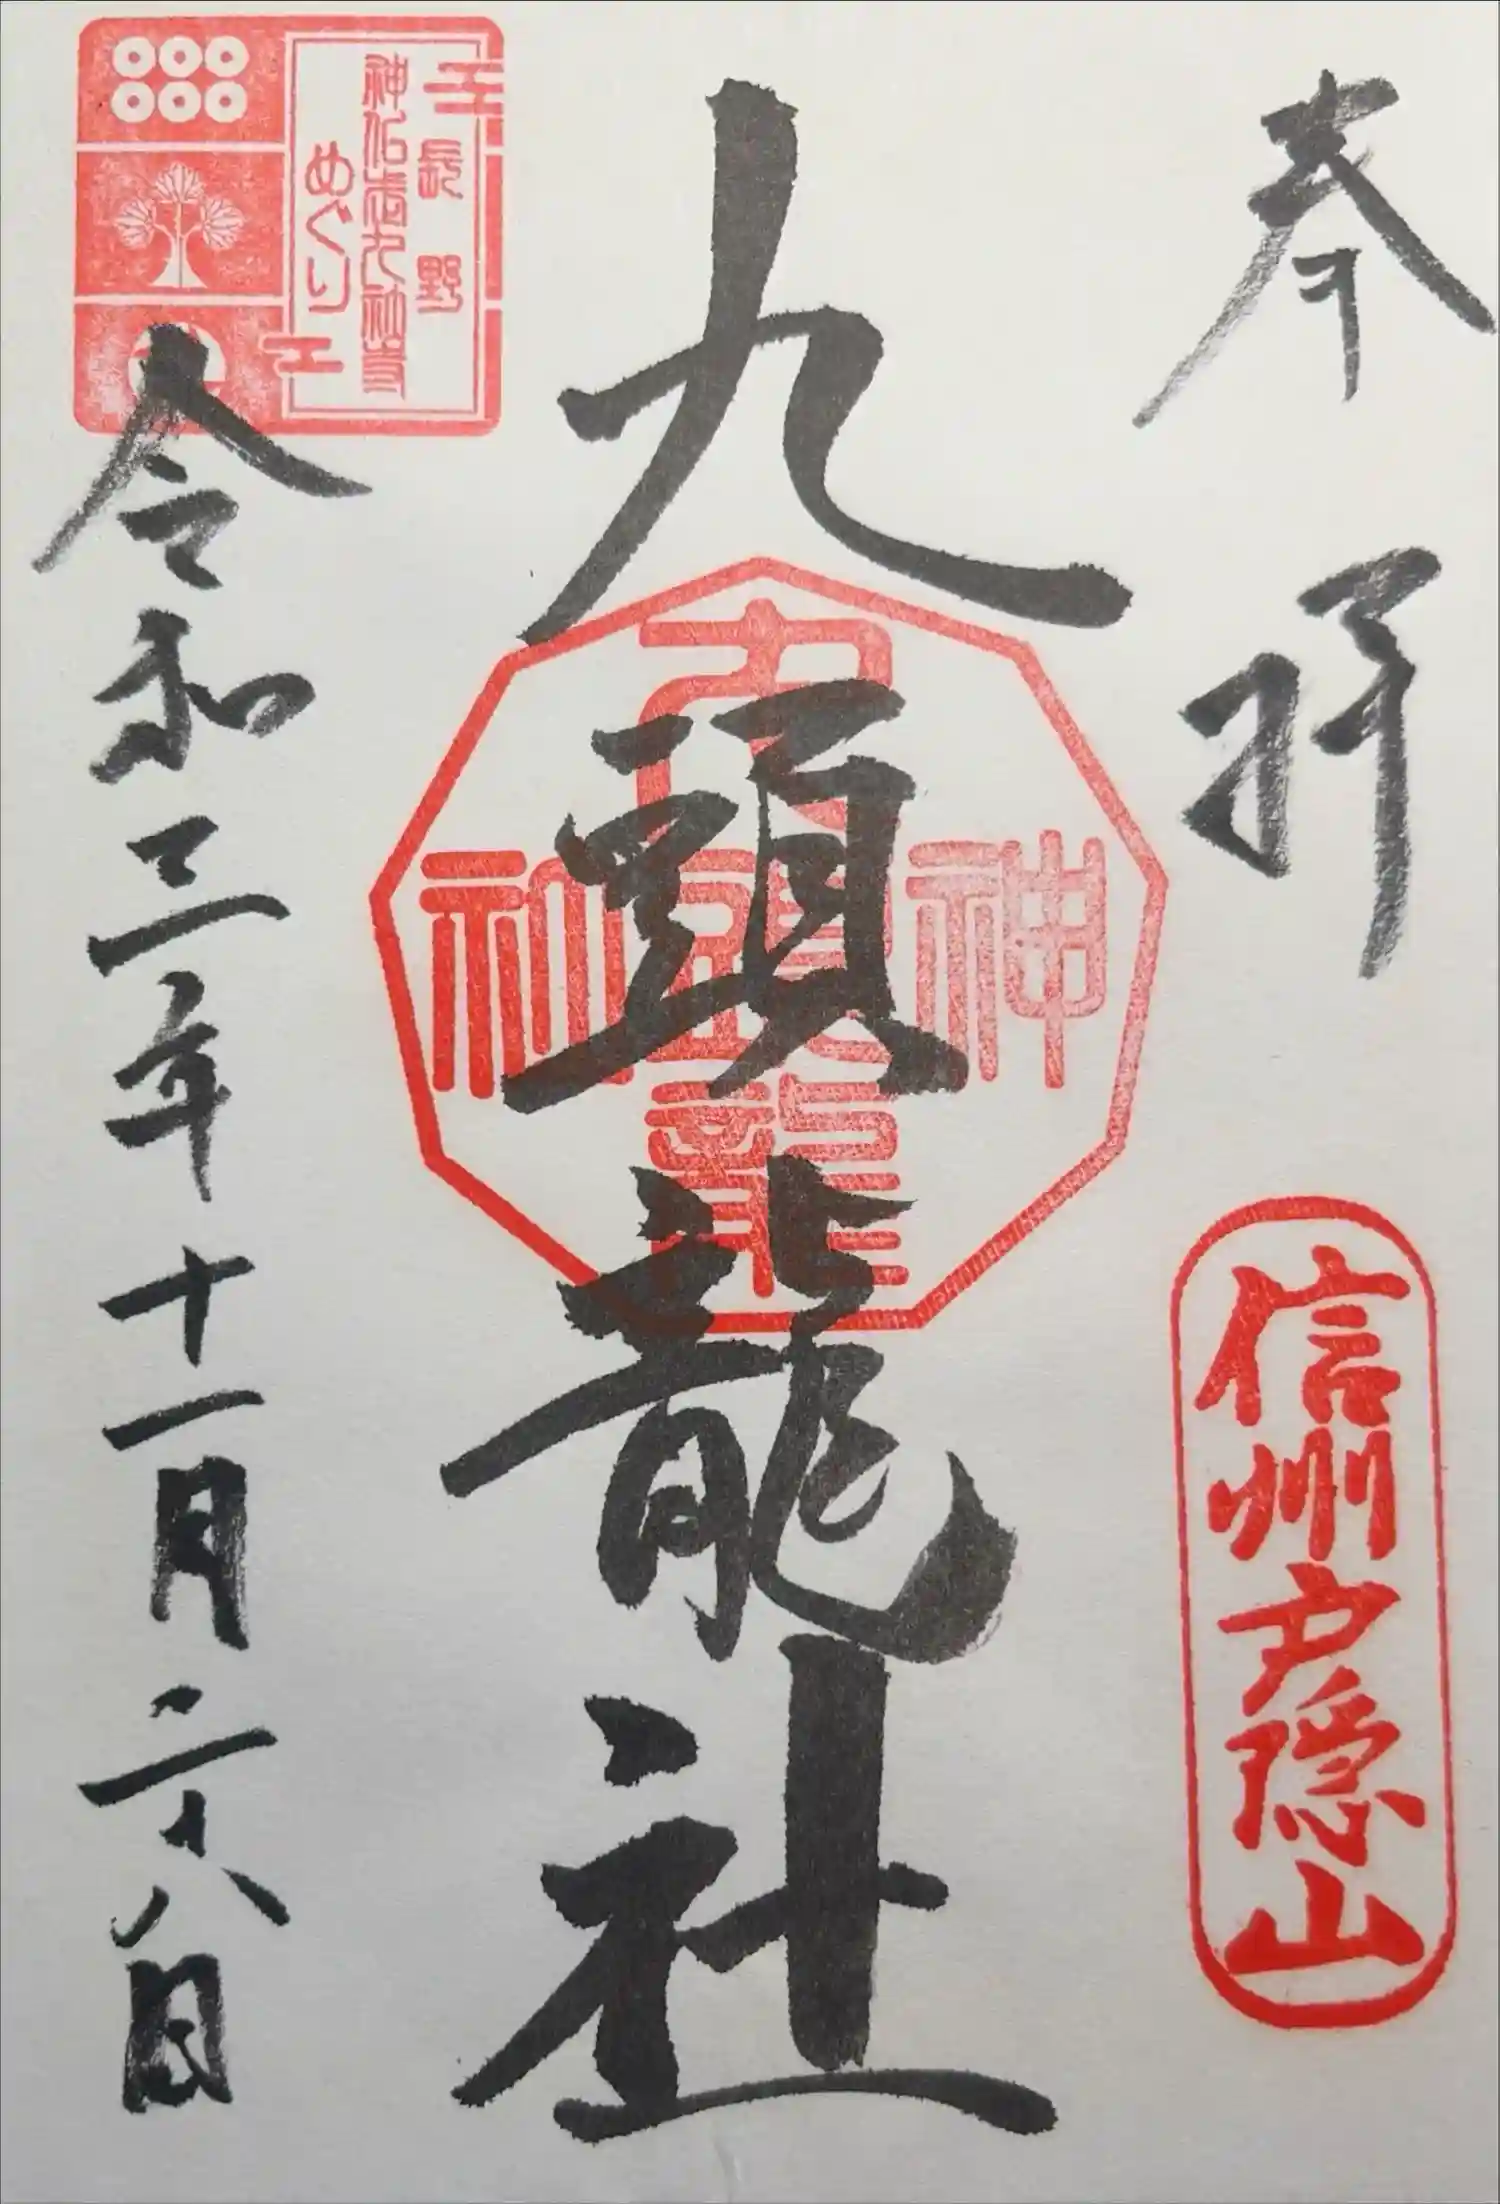 奉拝
信州戸隠山
九頭龍社
神
九頭龍
社
令和三年十一月二十八日
長野
めぐり